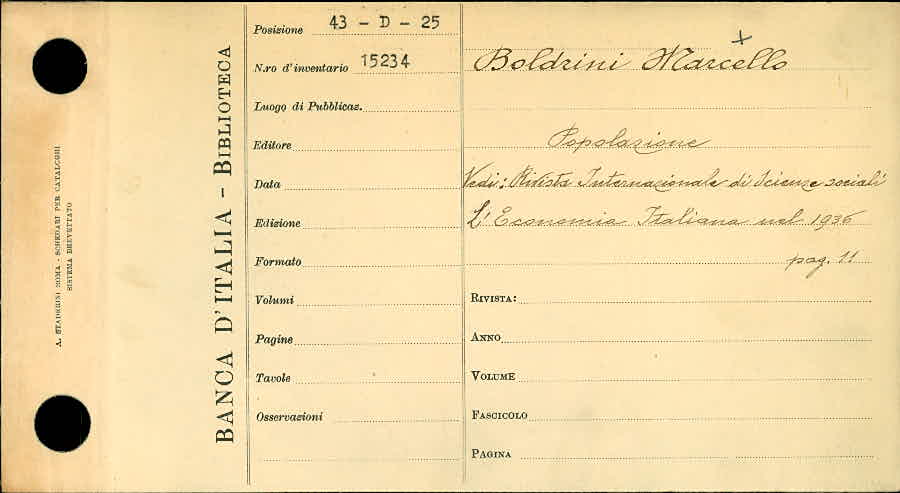 A. STADERINI ROMA - SCHEDARI PER CATALOGHI
SISTEMA BREVETTATO
BANCA D'ITALIA - BIBLIOTECA
Posizione 43 - D - 25
N.ro d'inventario 15234
Luogo di Pubblicaz.
Editore
Data
Edizione
Formato
Volumi
Pagine
Tavole
Osservazioni
+
Boldrini Marcello
Popolazione
Vedi: Rivista Internazionale di Scienze sociali
L'Economia Italiana nel 1936
pag. 11
RIVISTA:
ANNO
VOLUME
FASCICOLO
PAGINA